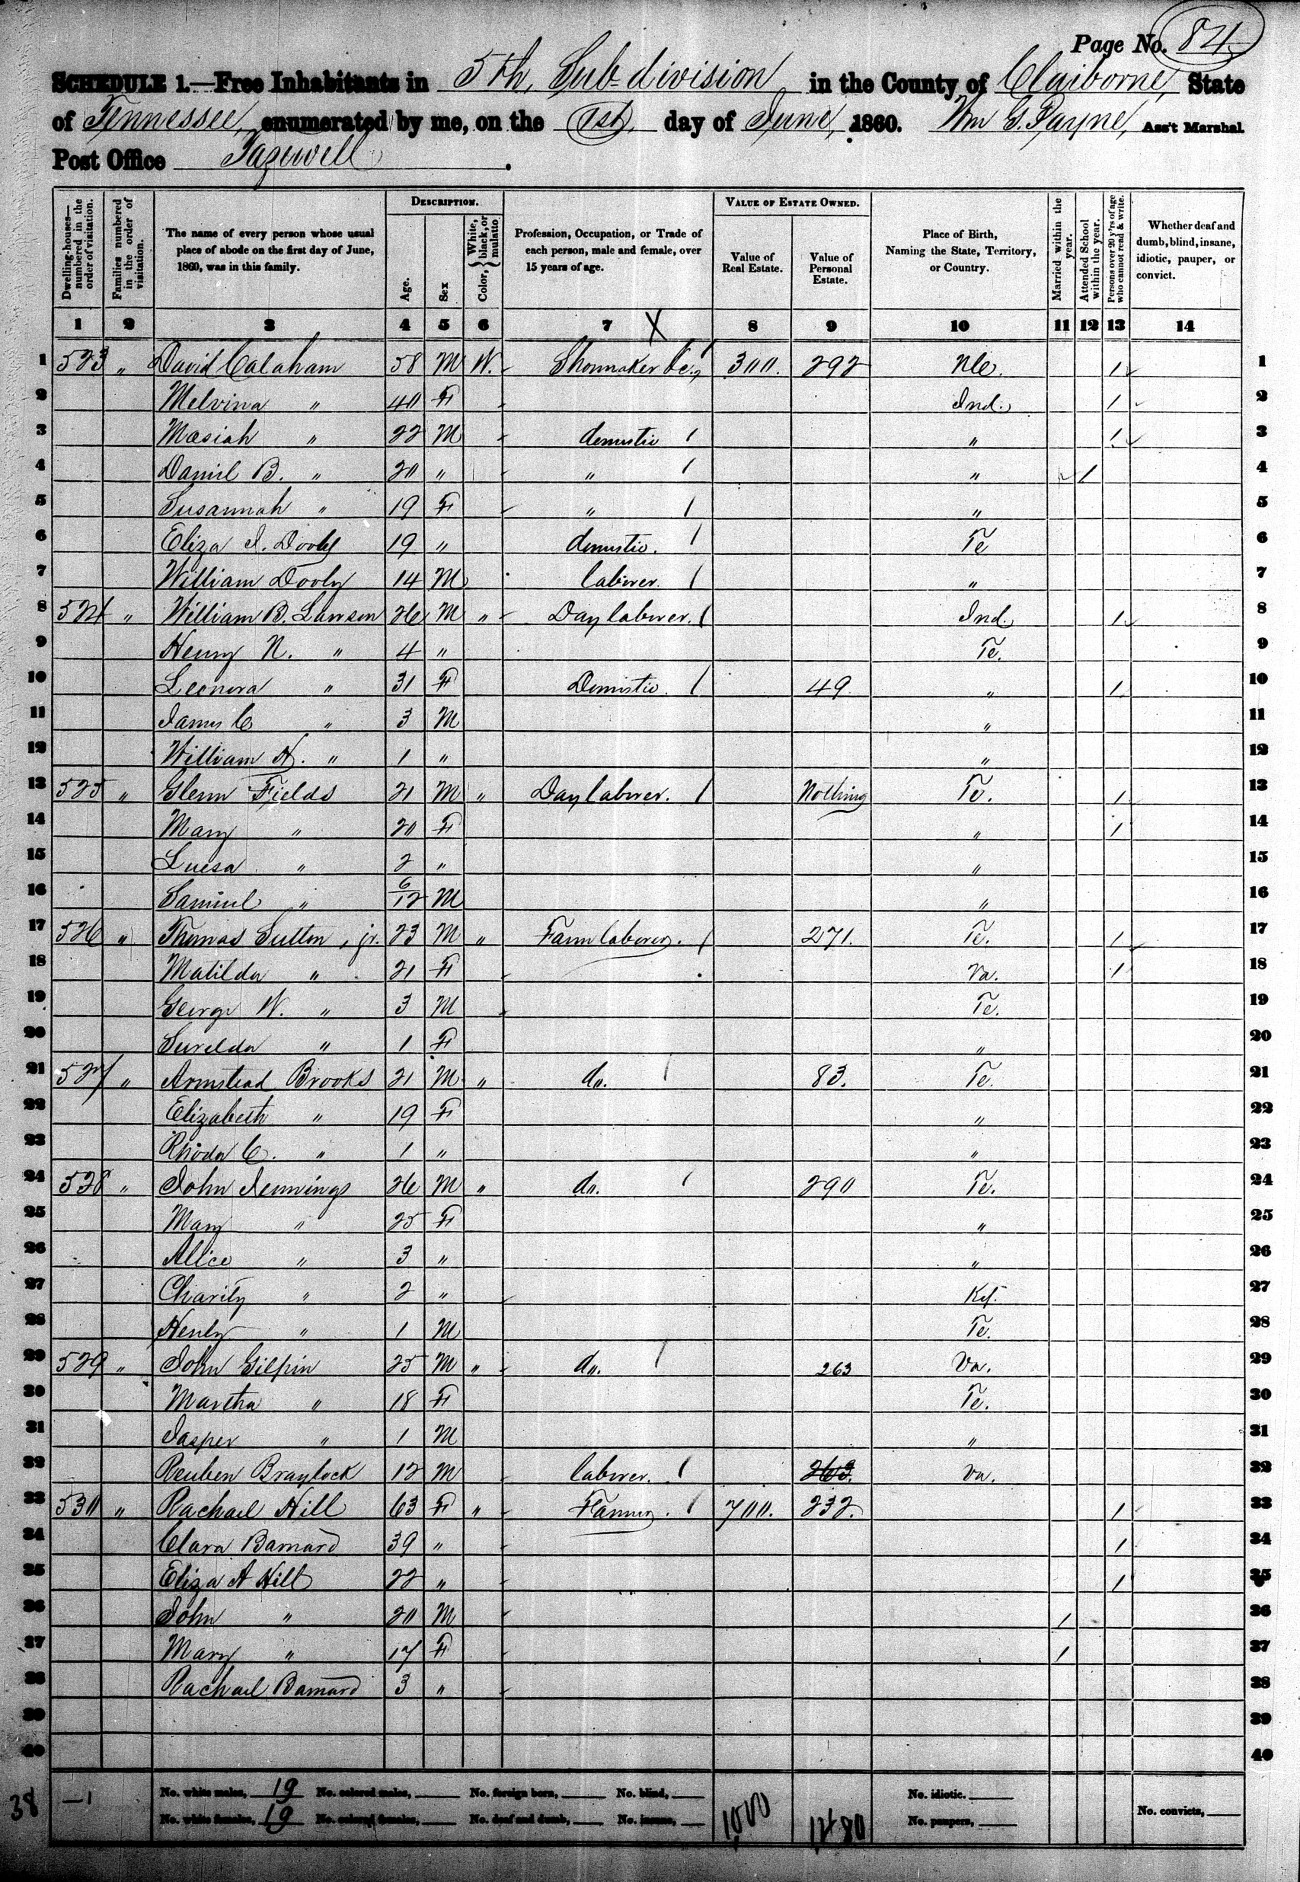 Page No. 84
SCHEDULE 1.—Free Inhabitants in 5th, Sub-division in the County of Claiborne, State
of Tennessee, enumerated by me, on the 1st day of June, 1860. Wm G. Payne, Ass't Marshal.
Post Office Tazewell.
Dwelling-houses—numbered in the order of visitation. Families numbered in the order of visitation. The name of every person whose usual place of abode on the first day of June, 1860, was in this family. DESCRIPTION. Age. Sex Color, White, black, or mulatto Profession, Occupation, or Trade of each person, male and female, over 15 years of age. VALUE OF ESTATE OWNED. Value of Real Estate. Value of Personal Estate. Place of Birth, Naming the State, Territory, or Country. Married within the year. Attended School within the year. Persons over 20 y'rs of age who cannot read & write. Whether deaf and dumb, blind, insane, idiotic, pauper, or convict.
1 2 3 4 5 6 7 X 8 9 10 11 12 13 14
1 523 " David Calaham 58 M W. Shoumaker &c, 300. 292 N C. 1 1
2 Melvina " 40 F Ind. 1 2
3 Masiah " 22 M domestic 1 " 1 3
4 Daniel B. " 20 " " 1 " 1 4
5 Susannah " 19 F " 1 " 5
6 Eliza J. Dooly 19 " domestic. 1 Te 6
7 William Dooly 14 M laborer. 1 " 7
8 524 " William B. Lawson 26 M " Day laborer. 1 Ind. 1 8
9 Henry N. " 4 " Te. 9
10 Leonora " 31 F Domestic 1 49 " 1 10
11 James C " 3 M " 11
12 William H. " 1 " " 12
13 525 " Glenn Fields 21 M " Day laborer. 1 Nothing Te. 1 13
14 Mary " 20 F " 1 14
15 Luesa " 2 " " 15
16 Samuel " 6/12 M " 16
17 526 " Thomas Sutton, jr. 23 M " Farm laborer. 1 271. Te. 1 17
18 Matilda " 21 F Va. 1 18
19 George W. " 3 M Te. 19
20 Surelda " 1 F " 20
21 527 " Armstead Brooks 21 M " do. 1 83. Te. 21
22 Elizabeth " 19 F " 22
23 Rhoda C. " 1 " " 23
24 528 " John Jennings 26 M " do. 1 290 Te. 24
25 Mary " 25 F " 25
26 Alice " 3 " " 26
27 Charity " 2 " Ky. 27
28 Henly " 1 M Te. 28
29 529 " John Gilpin 25 M " do. 1 263 Va. 29
30 Martha " 18 F Te. 30
31 Jasper " 1 M " 31
32 Reuben Braylock 12 M laborer. 1 263. Va. 32
33 530 " Rachael Hill 63 F " Farmer. 1 700. 232. 1 33
34 Clara Barnard 39 " 1 34
35 Eliza A Hill 22 " 1 35
36 John " 20 M 1 36
37 Mary " 17 F 1 37
38 Rachael Barnard 3 " 38
39 39
40 40
38 —1 No. white males, 19 No. colored males, No. foreign born, No. blind, No. idiotic.
No. white females, 19 No. colored females, No. deaf and dumb, No. insane, 1000 1480 No. paupers, No. convicts,